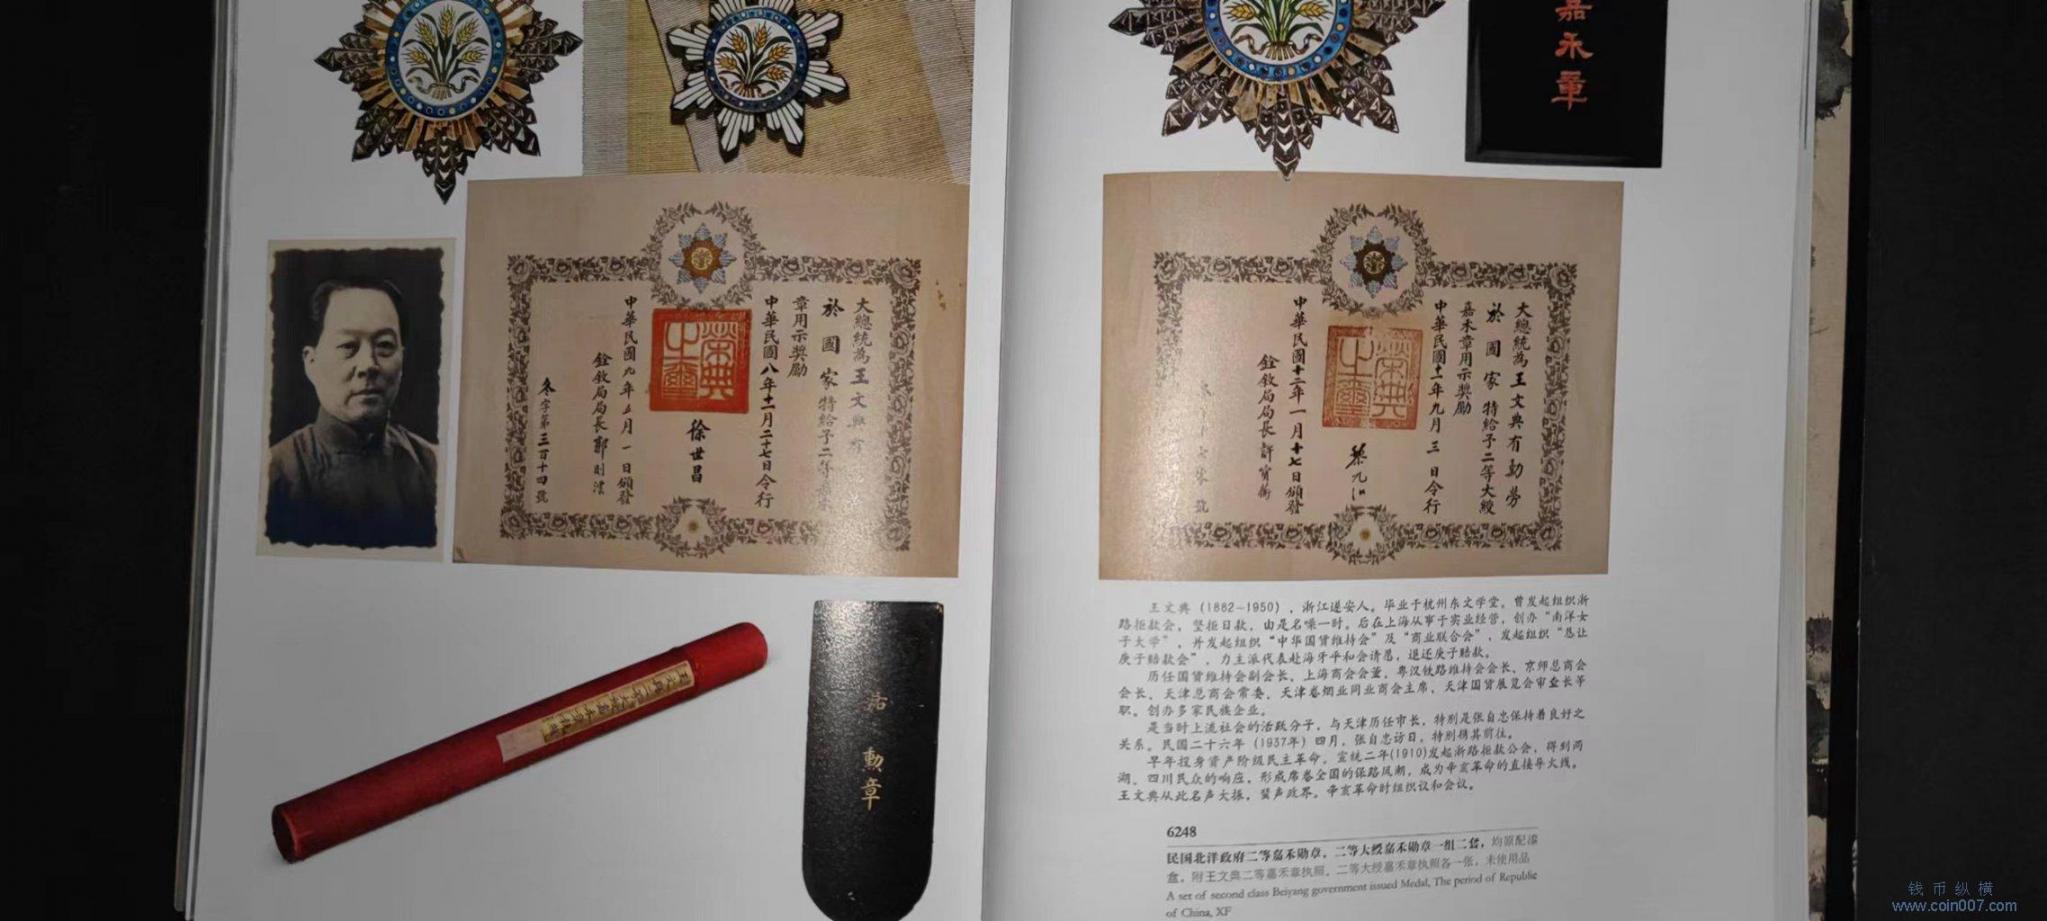 嘉禾章
大總統為王文典有
於國家特給予二等嘉禾
章用示奬勵
中華民國八年十一月二十七日令行
榮典之璽
徐世昌
中華民國九年五月一日頒發
銓敘局局長郭則澐
冬字第三百十四號
大總統為王文典有勳勞
於國家特給予二等大綬
嘉禾章用示奬勵
中華民國十一年九月三日令行
榮典之璽
黎元洪
中華民國十二年一月十七日頒發
銓敘局局長許寶蘅
號
勳章
王文典（1882-1950），浙江遂安人。毕业于杭州东文学堂。曾发起组织浙
路拒款会，坚拒日款，由是名噪一时。后在上海从事于实业经营，创办“南洋女
子大学”，并发起组织“中华国货维持会”及“商业联合会”，发起组织“急让
庚子赔款会”，力主派代表赴海牙平和会请愿，退还庚子赔款。
历任国货维持会副会长、上海商会会董、粤汉铁路维持会会长、京师总商会
会长、天津总商会常委、天津卷烟业同业商会主席、天津国货展览会审查长等
职。创办多家民族企业。
是当时上流社会的活跃分子，与天津历任市长，特别是张自忠保持着良好之
关系。民国二十六年（1937年）四月，张自忠访日，特别携其前往。
早年投身资产阶级民主革命。宣统二年(1910)发起浙路拒款公会，得到两
湖、四川民众的响应，形成席卷全国的保路风潮，成为辛亥革命的直接导火线。
王文典从此名声大振，蜚声政界。辛亥革命时组织议和会议。
6248
民国北洋政府二等嘉禾勋章，二等大绶嘉禾勋章一组二套，均原配漆
盒。附王文典二等嘉禾章执照、二等大绶嘉禾章执照各一张，未使用品
A set of second class Beiyang government issued Medal, The period of Republic
of China, XF
钱币纵横
www.coin007.com